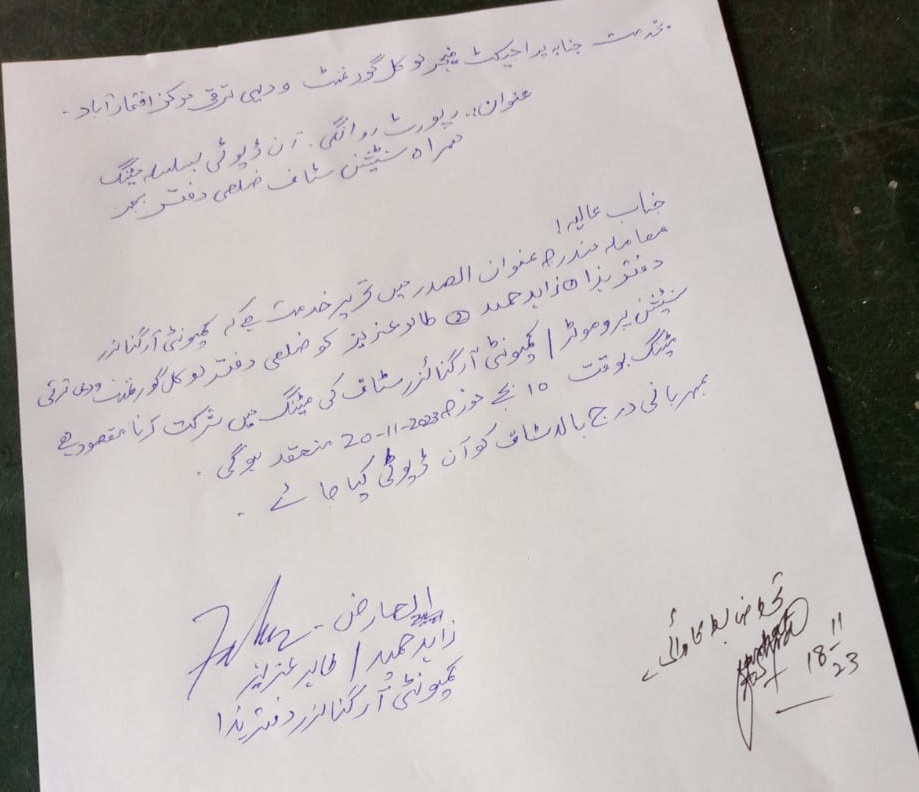 بخدمت جناب پراجیکٹ منیجر لوکل گورنمنٹ و دیہی ترقی مرکز افتخارآباد۔
عنوان:۔ رپورٹ روانگی۔ آن ڈیوٹی بسلسلہ میٹنگ
ہمراہ سٹیشن سٹاف ضلعی دفتر
جناب عالیہ!
معاملہ مندرجہ عنوان الصدر میں تحریر خدمت ہیکہ کمیونٹی آرگنائزر
دفتر ہذا ① زاہد حمید ② طاہر عزیز کو ضلعی دفتر لوکل گورنمنٹ و دیہی ترقی
سٹیشن پروموٹر / کمیونٹی آرگنائزر سٹاف کی میٹنگ میں شرکت کرنا مقصود ہے
میٹنگ بوقت 10 بجے مورخہ 20-11-2023 منعقد ہوگی۔
بمہربانی درج بالا سٹاف کو آن ڈیوٹی کیا جائے۔
العارض۔
زاہد حمید / طاہر عزیز
کمیونٹی آرگنائزر دفتر ہذا
18-11
23